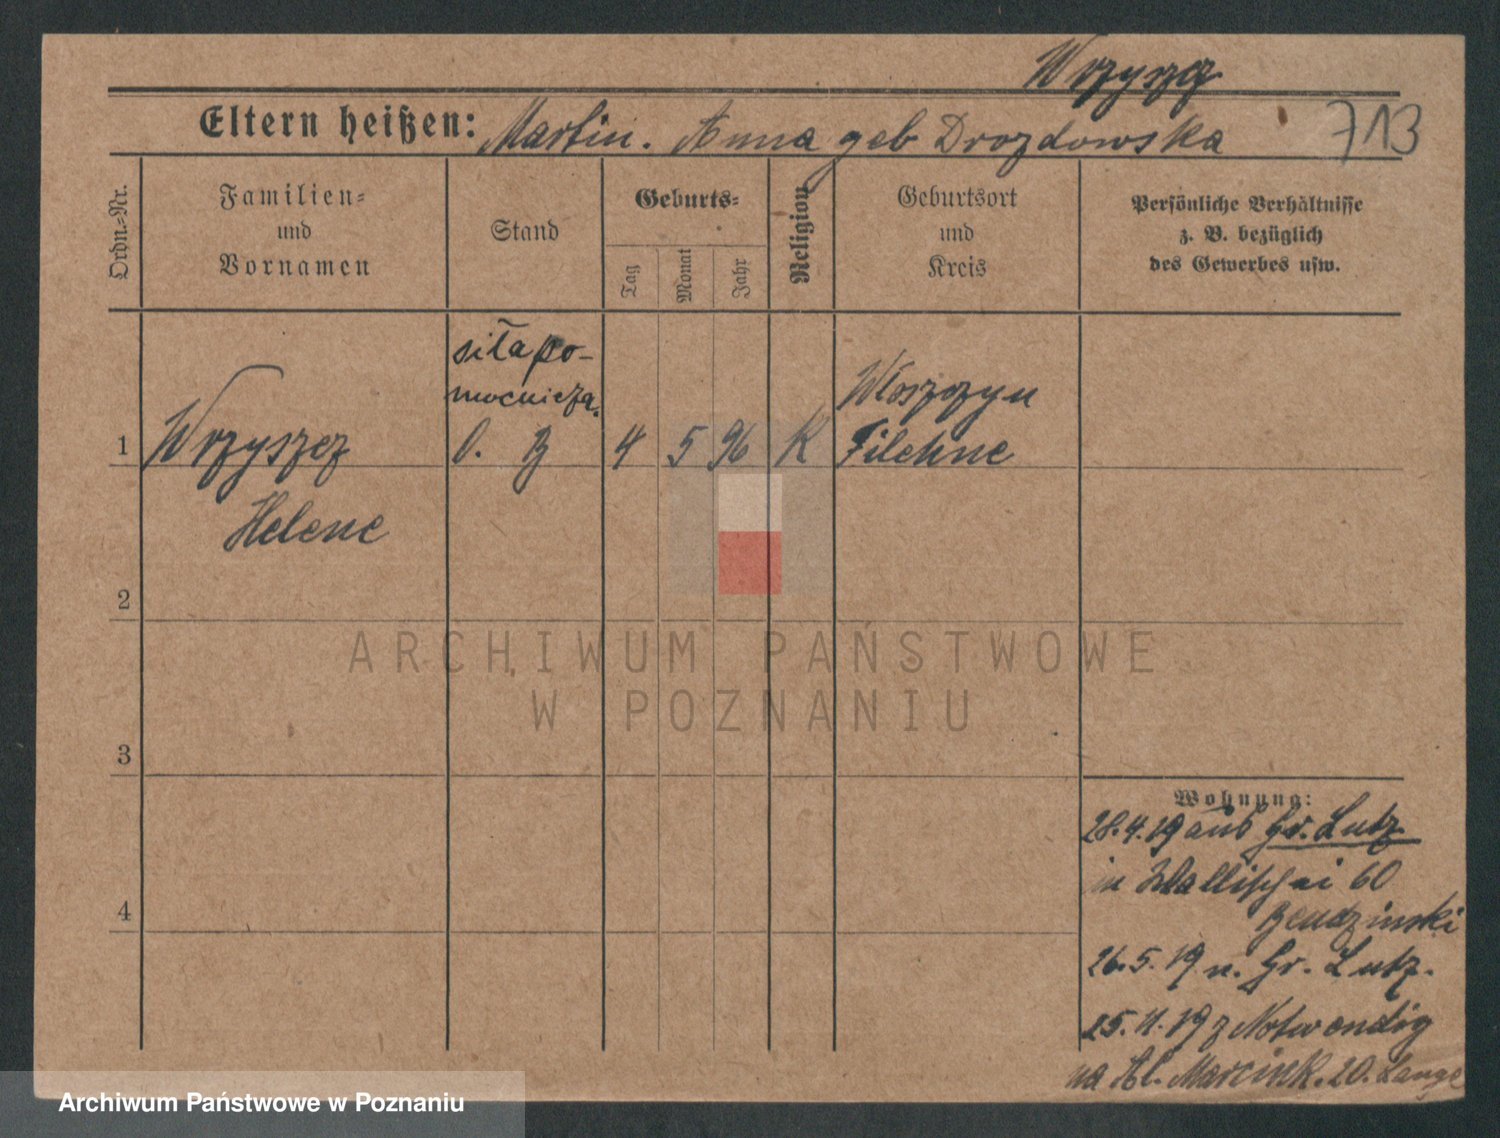 Wrzyszcz
Eltern heißen: Martin. Anna geb Drozdowska 713
Ordn.-Nr.
Familien-
und
Vornamen
Stand
Geburts-
Tag
Monat
Jahr
Religion
Geburtsort
und
Kreis
Persönliche Verhältnisse
z. B. bezüglich
des Gewerbes usw.
siła po-
mocnicza.
1 Wrzyszcz
Helene
4 5 96 K
Filehne
2
3
4
ARCHIWUM PAŃSTWOWE
W POZNANIU
Wohnung:
28.4.19 aus Gr. Lutz
in Wallischei 60
Bendzinski
26.5.19 n. Gr. Lutz.
25.11.19 z Notwendig
na Al. Marcink. 20. Lange
Archiwum Państwowe w Poznaniu